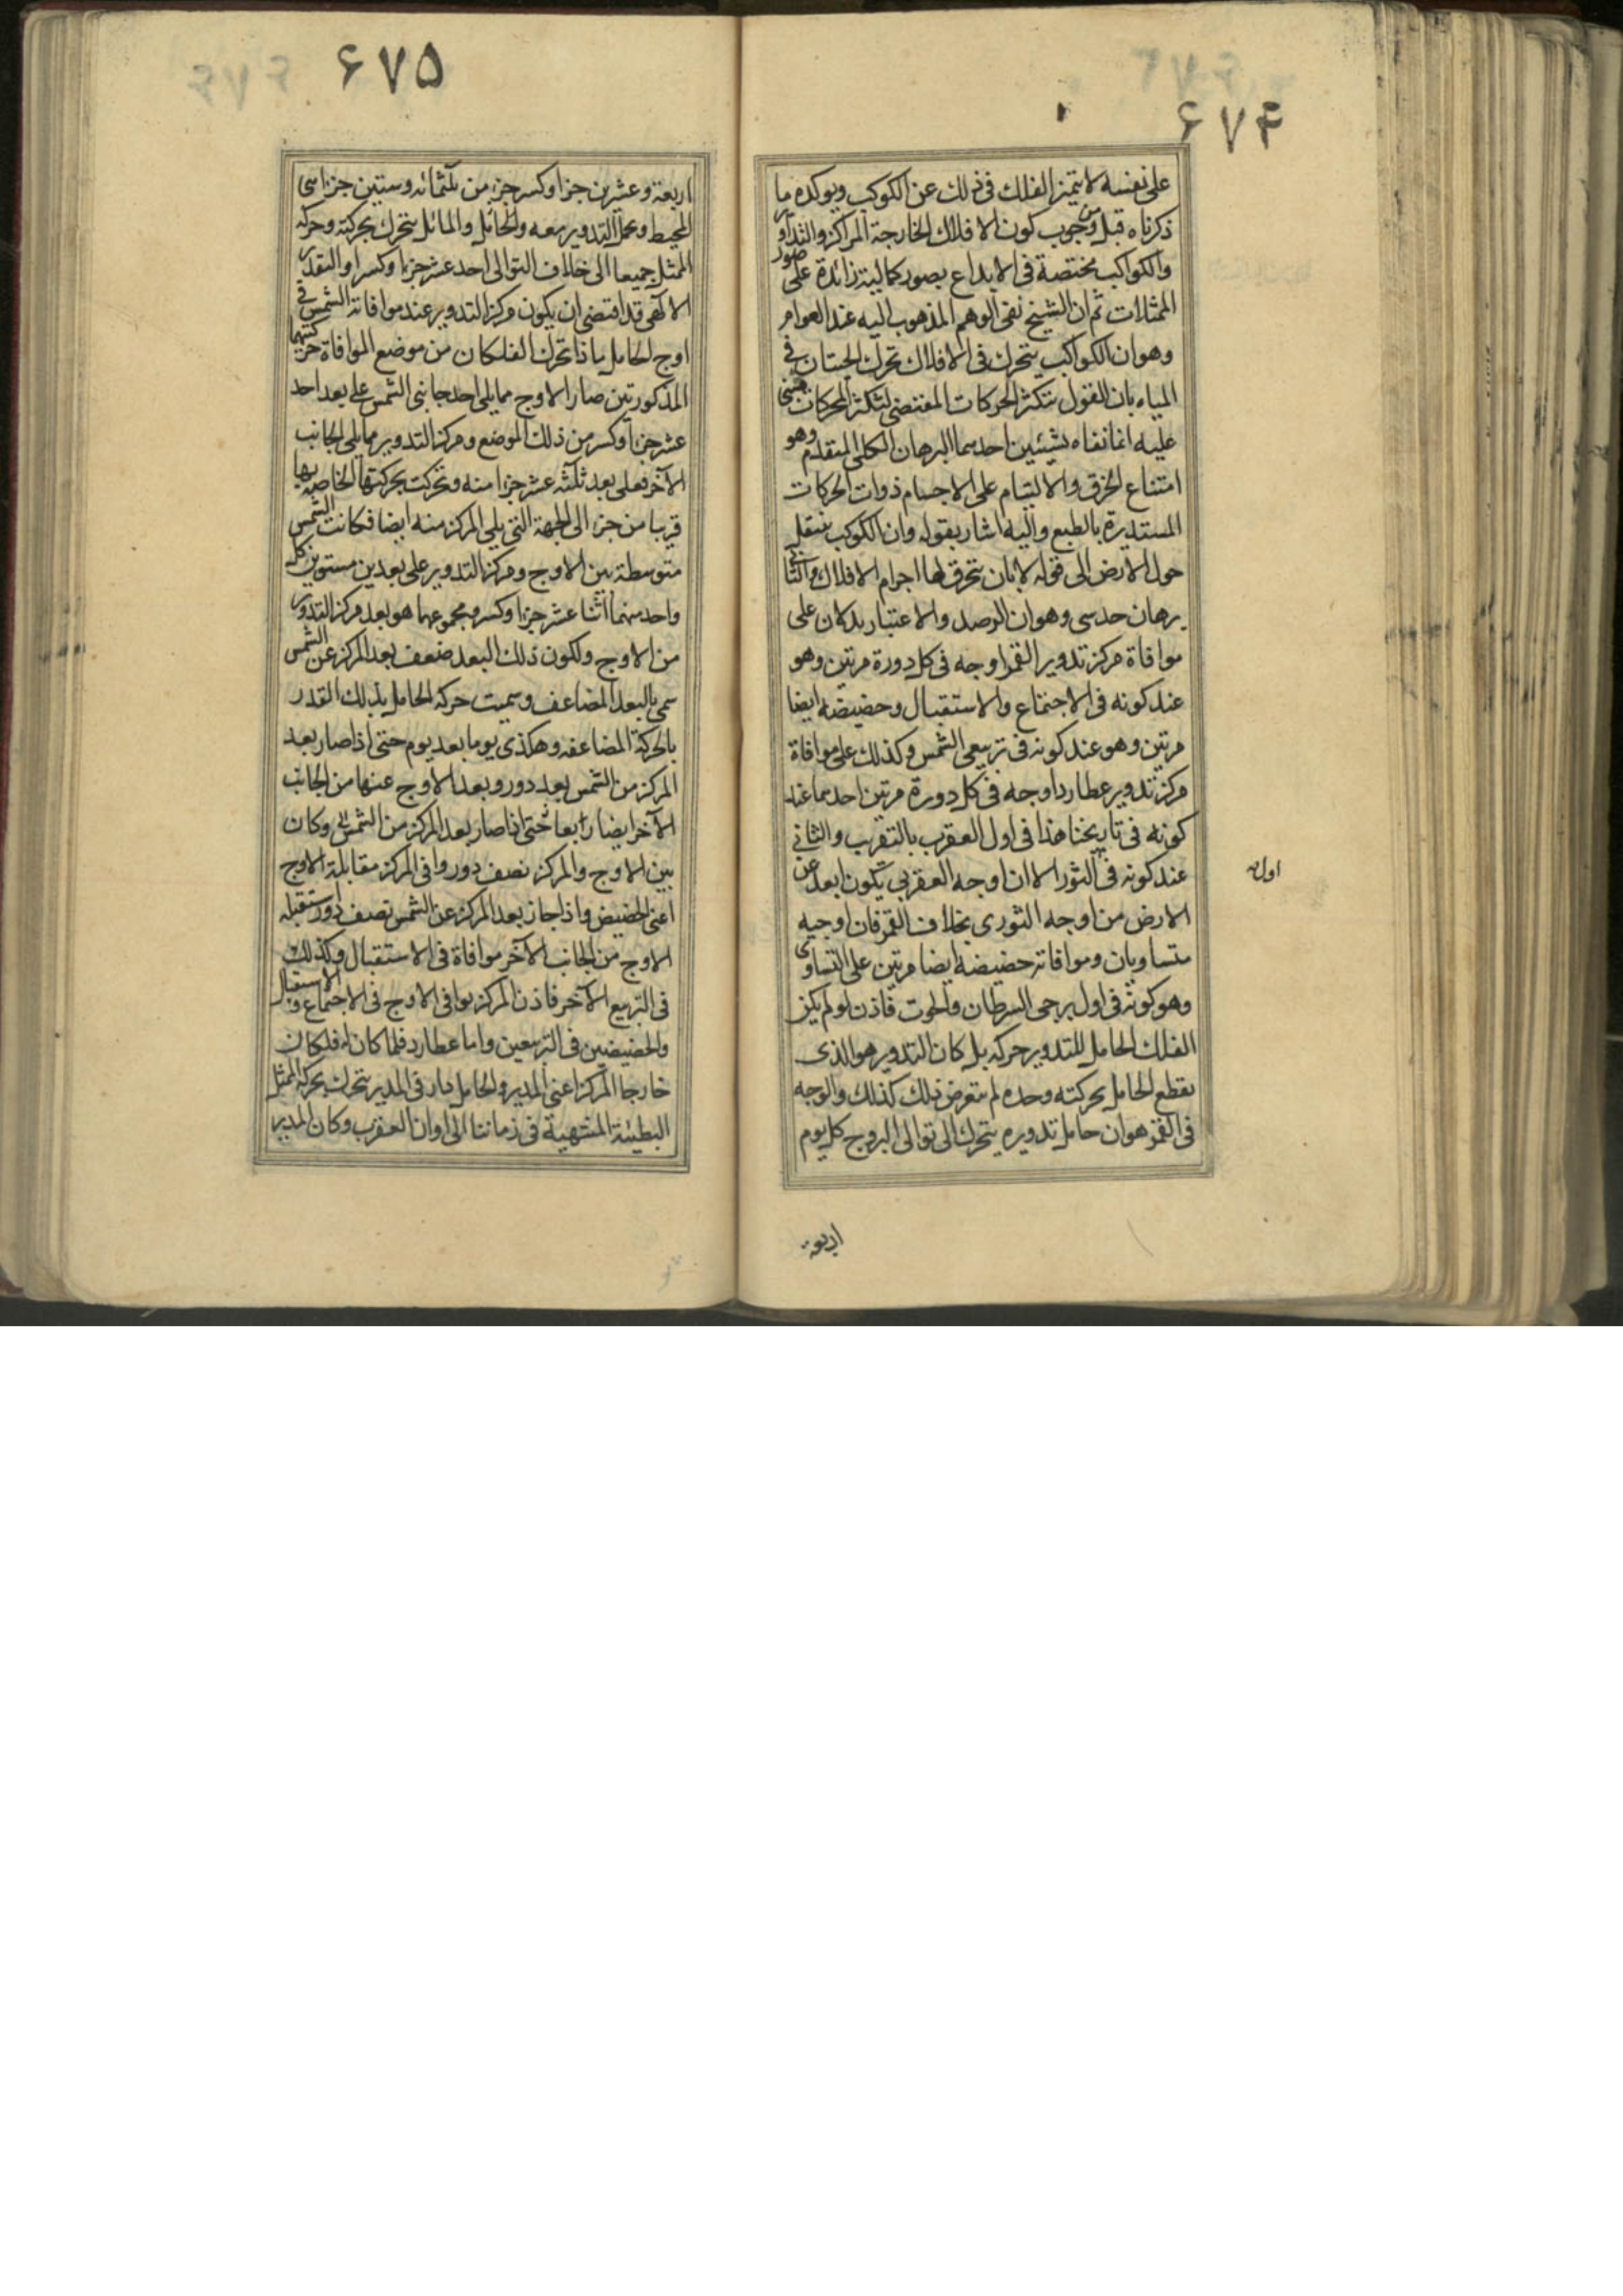 ۶۷۴
على نفسه لا يتميز الفلك فى ذلك عن الكوكب ويوكده ما
ذكرناه قبل من وجوب كون الافلاك الخارجة المراكز والتداوير
والكواكب مختصة فى الابداع بصور كمالية زائدة على صور
الممثلات ثم ان الشيخ نفى الوهم المذهوب اليه عند العوام
وهو ان الكواكب يتحرك فى الافلاك تحرك الحيتان فى
المياه بان القول بتكثر الحركات المقتضى لتكثر المحركات مبنى
عليه انما نفاه بشيئين احدهما البرهان الكلى المتقدم وهو
امتناع الخرق والالتيام على الاجسام ذوات الحركات
المستديرة بالطبع واليه اشار بقوله وان الكوكب ينتقل
حول الارض الى قوله لا بان ينخرق لها اجرام الافلاك والثانى
برهان حدسى وهو ان الرصد والاعتبار يدلان على
موافاة مركز تدوير القمر اوجه فى كل دورة مرتين وهو
عند كونه فى الاجتماع والاستقبال وحضيضه ايضا
مرتين وهو عند كونه فى تربيعى الشمس وكذلك على موافاة
مركز تدوير عطارد اوجه فى كل دورة مرتين احدهما عند
كونه فى تاريخنا هذا فى اول العقرب بالتقريب والثانى
عند كونه فى الثور الا ان اوجه العقربى يكون ابعد عن
اوله
الارض من اوجه الثورى بخلاف القمر فان اوجيه
متساويان وموافاته حضيضه ايضا مرتين على التساوى
وهو كونه فى اول برجى السرطان والحوت فاذن لو لم يكن
الفلك الحامل للتدوير حركة بل كان التدوير هو الذى
يقطع الحامل بحركته وحده لم يعرض ذلك كذلك والوجه
فى القمر هو ان حامل تدويره يتحرك الى توالى البروج كل يوم
اربعة
۶۷۵
اربعة وعشرين جزا وكسر جزء من ثلثمائه وستين جزا من
المحيط وعمل التدوير معه والحامل والمائل يتحرك بحركته وحركة
الممثل جميعا الى خلاف التوالى احد عشر جزا وكسرا والتقدير
الالهى قد اقتضى ان يكون مركز التدوير عند موافاته الشمس فى
اوج الحامل فاذا تحرك الفلكان من موضع الموافاة حركتيهما
المذكورتين صار الاوج مما يلى احد جانبى الشمس على بعد احد
عشر جزا وكسر من ذلك الموضع ومركز التدوير مما يلى الجانب
الآخر فعلى بعد ثلثه عشر جزا منه وتحركت بحركتها الخاصة بها
قريبا من جزء الى الجهة التى يلى المركز منه ايضا فكانت الشمس
متوسطة بين الاوج ومركز التدوير على بعدين مستويين كل
واحد منهما اثنا عشر جزا وكسر ومجموعهما هو بعد مركز التدوير
من الاوج ولكون ذلك البعد ضعف بعد المركز عن الشمس
سمى بالبعد المضاعف وسميت حركة الحامل بذلك القدر
بالحركة المضاعفه وهكذى يوما بعد يوم حتى اذا صار بعد
المركز من الشمس بعد دور وبعد الاوج عنها من الجانب
الآخر ايضا رابعا حتى اذا صار بعد المركز من الشمس وكان
بين الاوج والمركز نصف دور وافى المركز مقابلة الاوج
اعنى الحضيض واذا جاز بعد المركز عن الشمس نصف دور استقبله
الاوج من الجانب الآخر موافاة فى الاستقبال وكذلك
فى التربيع الآخر فاذن المركز يوافى الاوج فى الاجتماع والاستقبال
والحضيضين فى التربيعين واما عطارد فلما كان له فلكان
خارجا المركز اعنى المدير والحامل صار فى المدير يتحرك بحركة الممثل
البطيئة المنتهية فى زماننا الى اوان العقرب وكان المدير